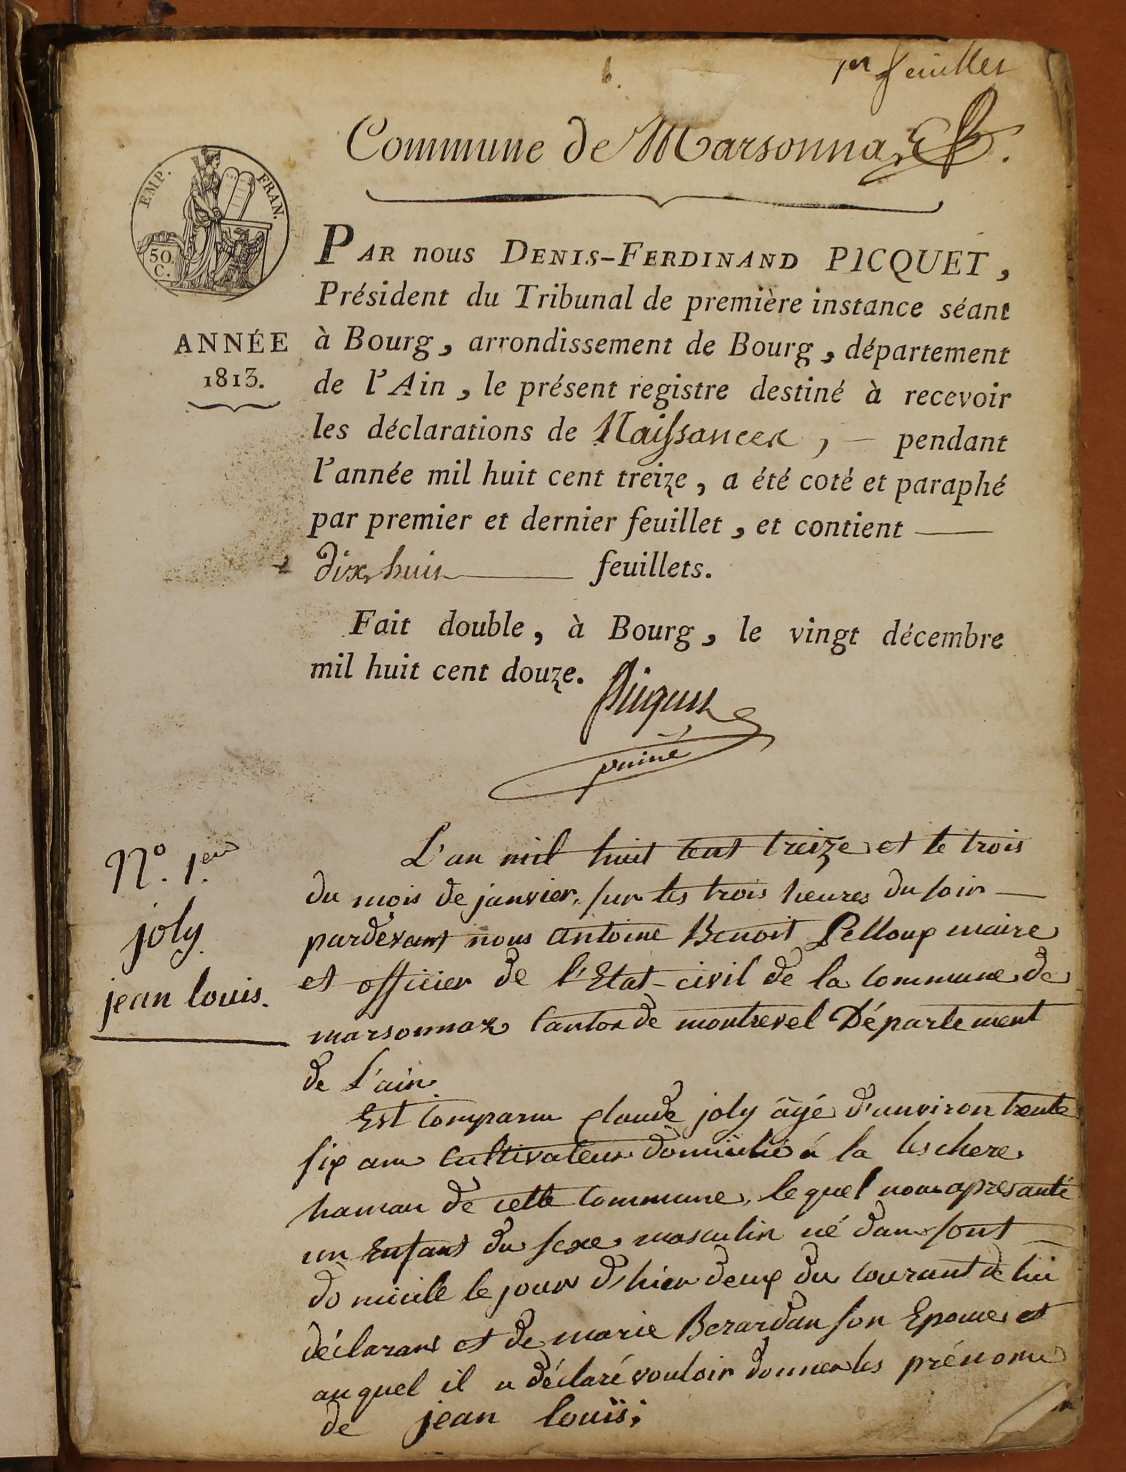 1er feuillet
6.
Commune de Marsonnaz
EMP. FRAN.
50.
C.
ANNÉE
1813.
PAR nous DENIS-FERDINAND PICQUET,
Président du Tribunal de première instance séant
à Bourg, arrondissement de Bourg, département
de l'Ain, le présent registre destiné à recevoir
les déclarations de Naissances, — pendant
l'année mil huit cent treize, a été coté et paraphé
par premier et dernier feuillet, et contient —
dix huit — feuillets.
Fait double, à Bourg, le vingt décembre
mil huit cent douze.
Picquet
puiné
N.o 1.er
joly
jean louis.
L'an mil huit cent treize et le trois
du mois de janvier, sur les trois heures du soir —
pardevant nous antoine Benoit Pelloup maire
et officier de l'Etat-civil de la commune de
marsonnaz Canton de montrevel Département
de l'ain.
Est comparu claude joly âgé d'anviron trente
six ans cultivateur domicilié à la leschere
hamau de cette commune, lequel nous apresanté
un Enfant du sexe masculin né dans sont
domicile le jour d'hier deux du courant de lui
déclarant et de marie Berardan son Epouse et
auquel il a déclaré vouloir donner les prénoms
de jean louïs;